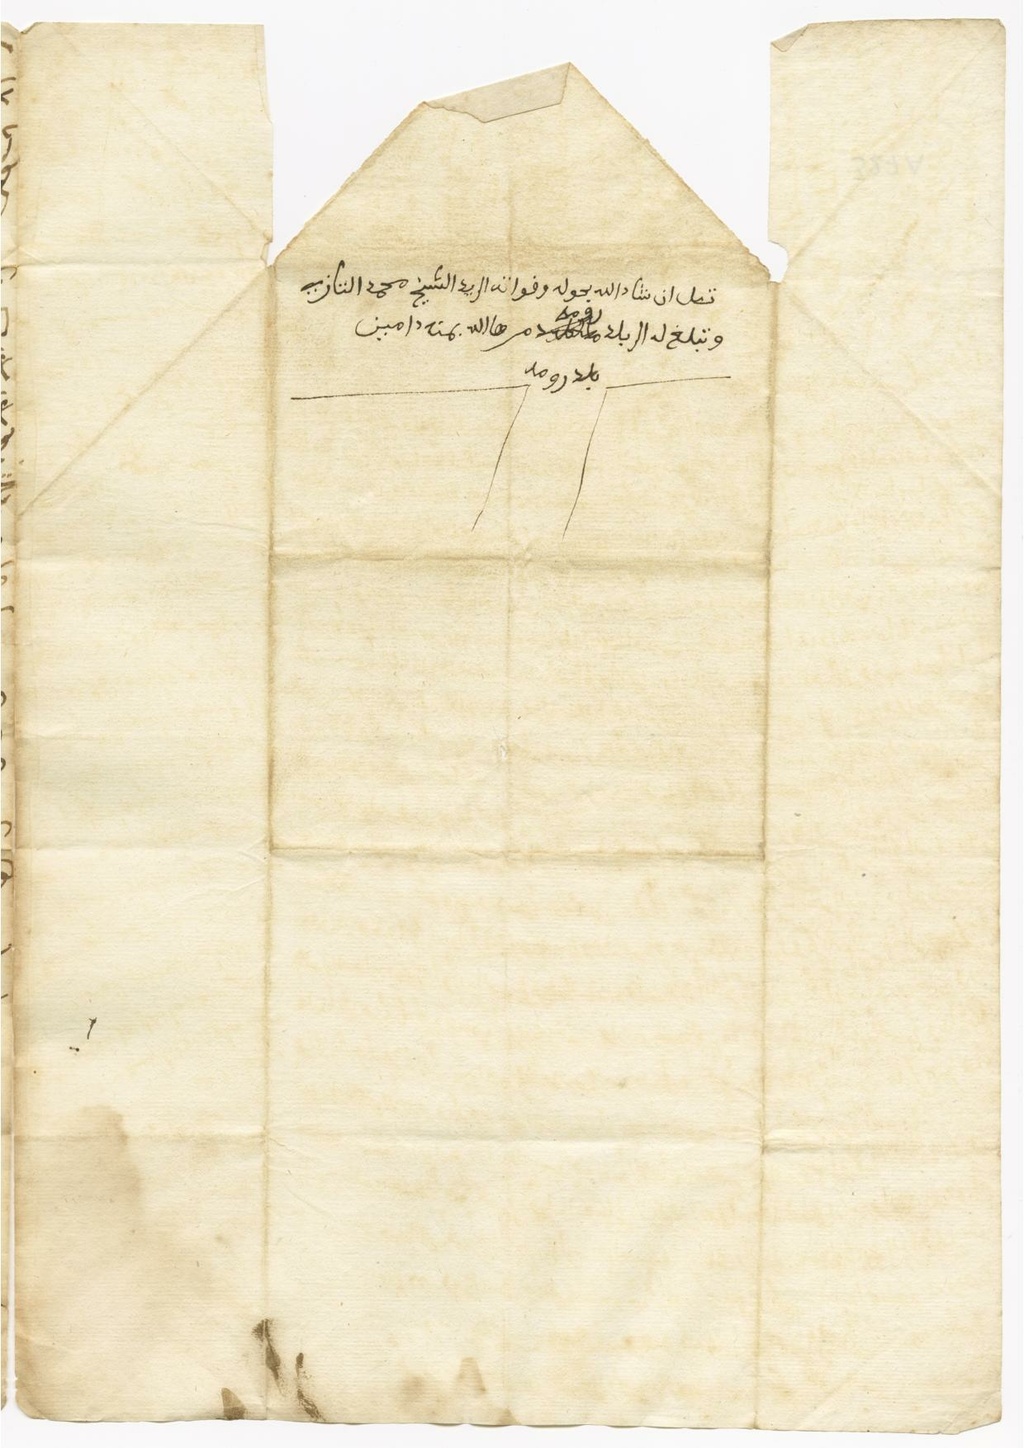 تصل ان شاء الله بحوله وقواته الى يد الشيخ محمد التازي
وتبلغ له الى بلد رومه عمرها الله بمنه ءامين
بلد رومه